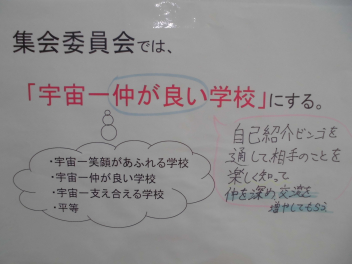 集会委員会では、
「宇宙一仲が良い学校」にする。
・宇宙一笑顔があふれる学校
・宇宙一仲が良い学校
・宇宙一支え合える学校
・平等
自己紹介ビンゴを
通して相手のことを
楽しく知って
仲を深め、交流を
増やしてもらう